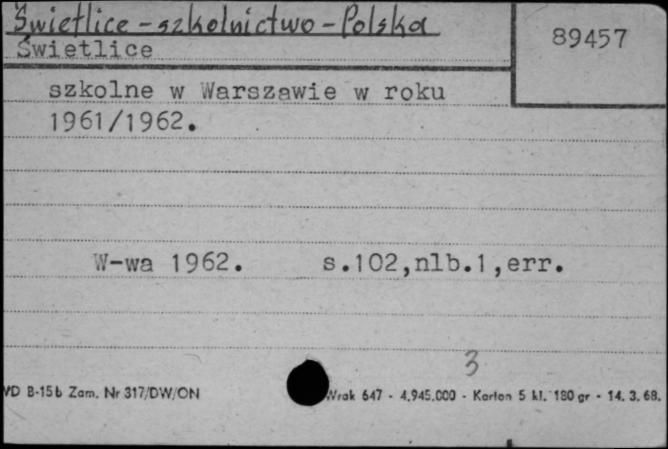 Świetlice - szkolnictwo - Polska
89457
Świetlice
szkolne w Warszawie w roku
1961/1962.
W-wa 1962. s.102,nlb.1,err.
3
VD B-15b Zam. Nr 317/DW/ON Wrak 647 - 4.945.000 - Karton 5 kl. 180 gr - 14. 3. 68.